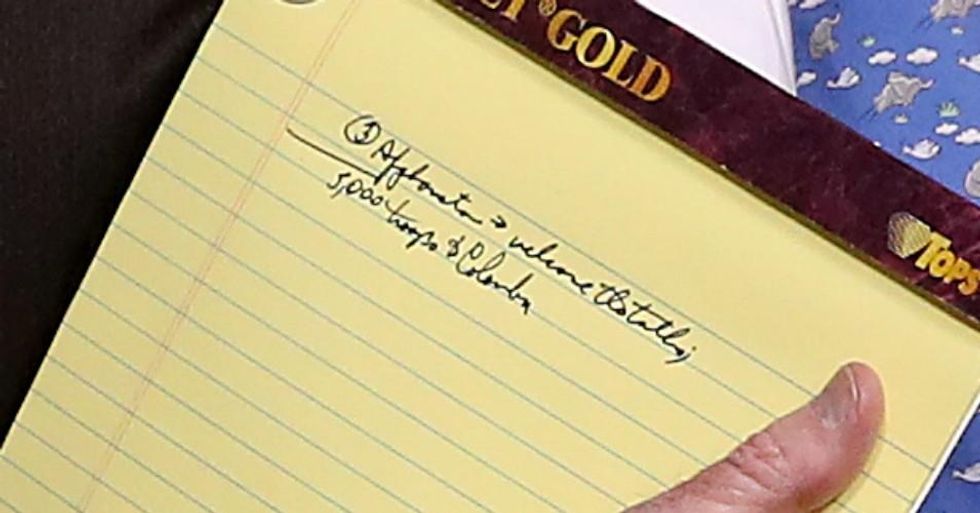 GOLD
TOPS
③ Afghanistan → welcome the talks;
5,000 troops to Colombia